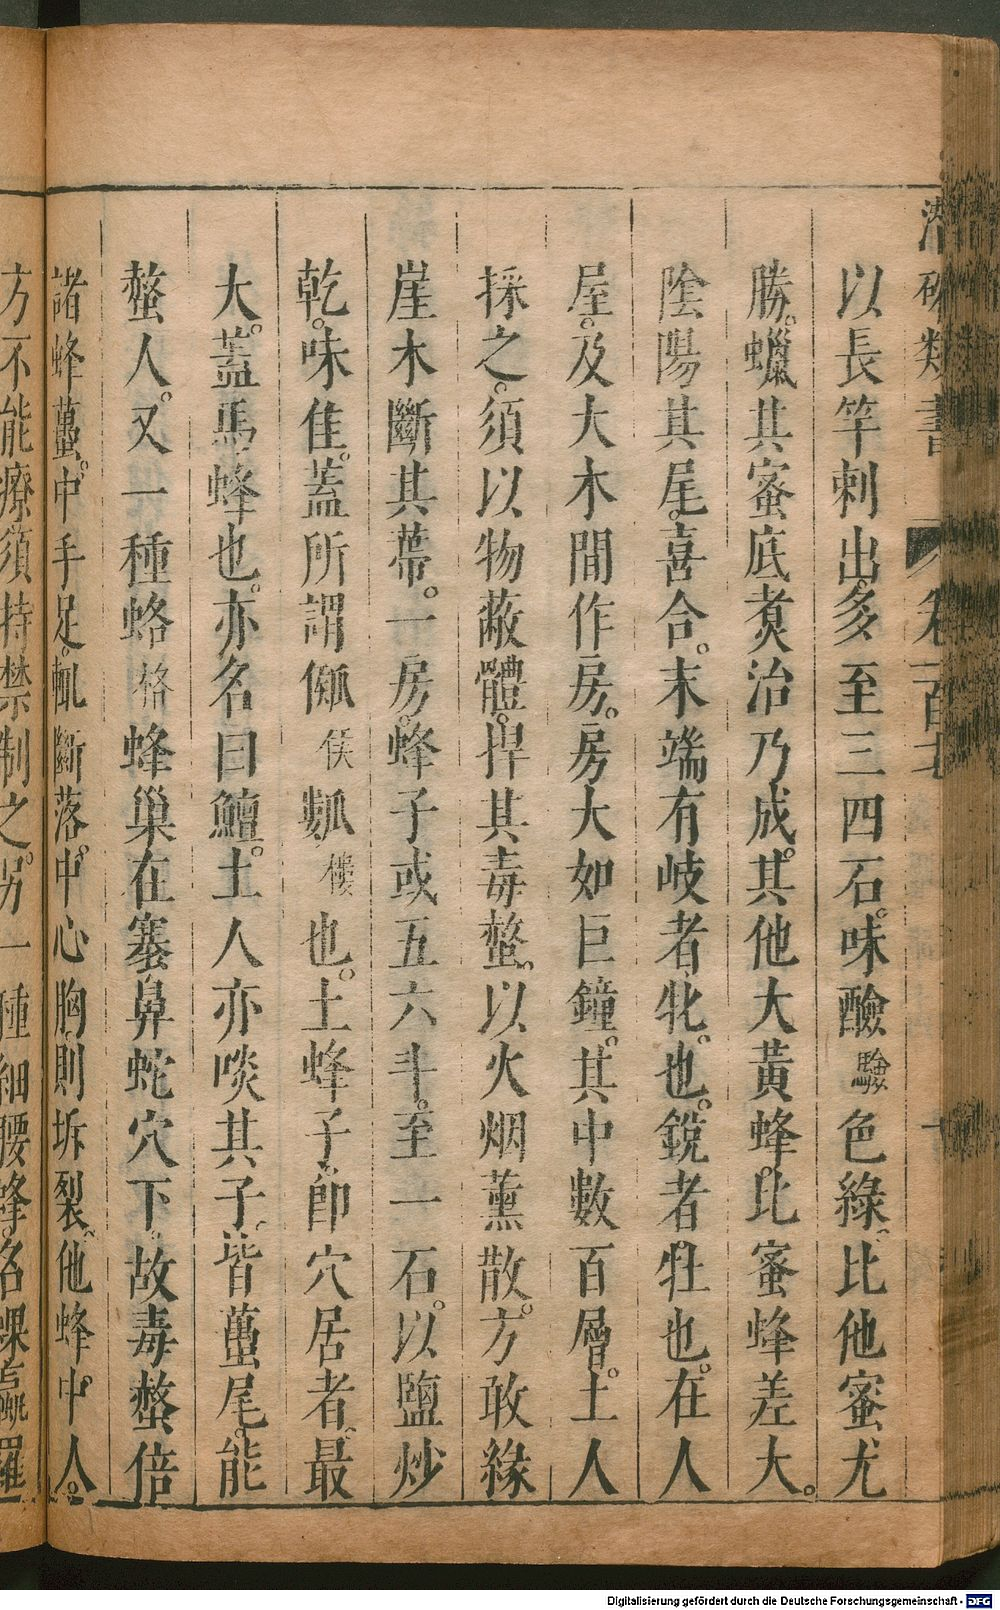 以長竿刺出。多至三四石。味醶驗色綠。比他蜜尤
勝。蠟其蜜底煑治乃成。其他大黃蜂。比蜜蜂差大。
陰陽其尾。喜合。末端有岐者。牝也。銳者。牡也。在人
屋。及大木間作房。房大如巨鐘。其中數百層。土人
採之。須以物蔽體。捍其毒螫。以火烟薰散。方敢緣
崖木斷其蔕。一房。蜂子或五六斗。至一石。以鹽炒
乾。味佳。蓋所謂㼋侯㼖樓也。土蜂子。即穴居者。最
大。蓋馬蜂也。亦名曰蟺。土人亦啖其子。皆蠆尾。能
螫人。又一種蛒格蜂巢在褰鼻蛇穴下。故毒螫倍
諸蜂蠆。中手足。輒斷落。中心胸。則圻裂。他蜂中人。
方不能療。須持禁制之。另一種細腰蜂。名
類書
卷一百七
Digitalisierung gefördert durch die Deutsche Forschungsgemeinschaft - DFG